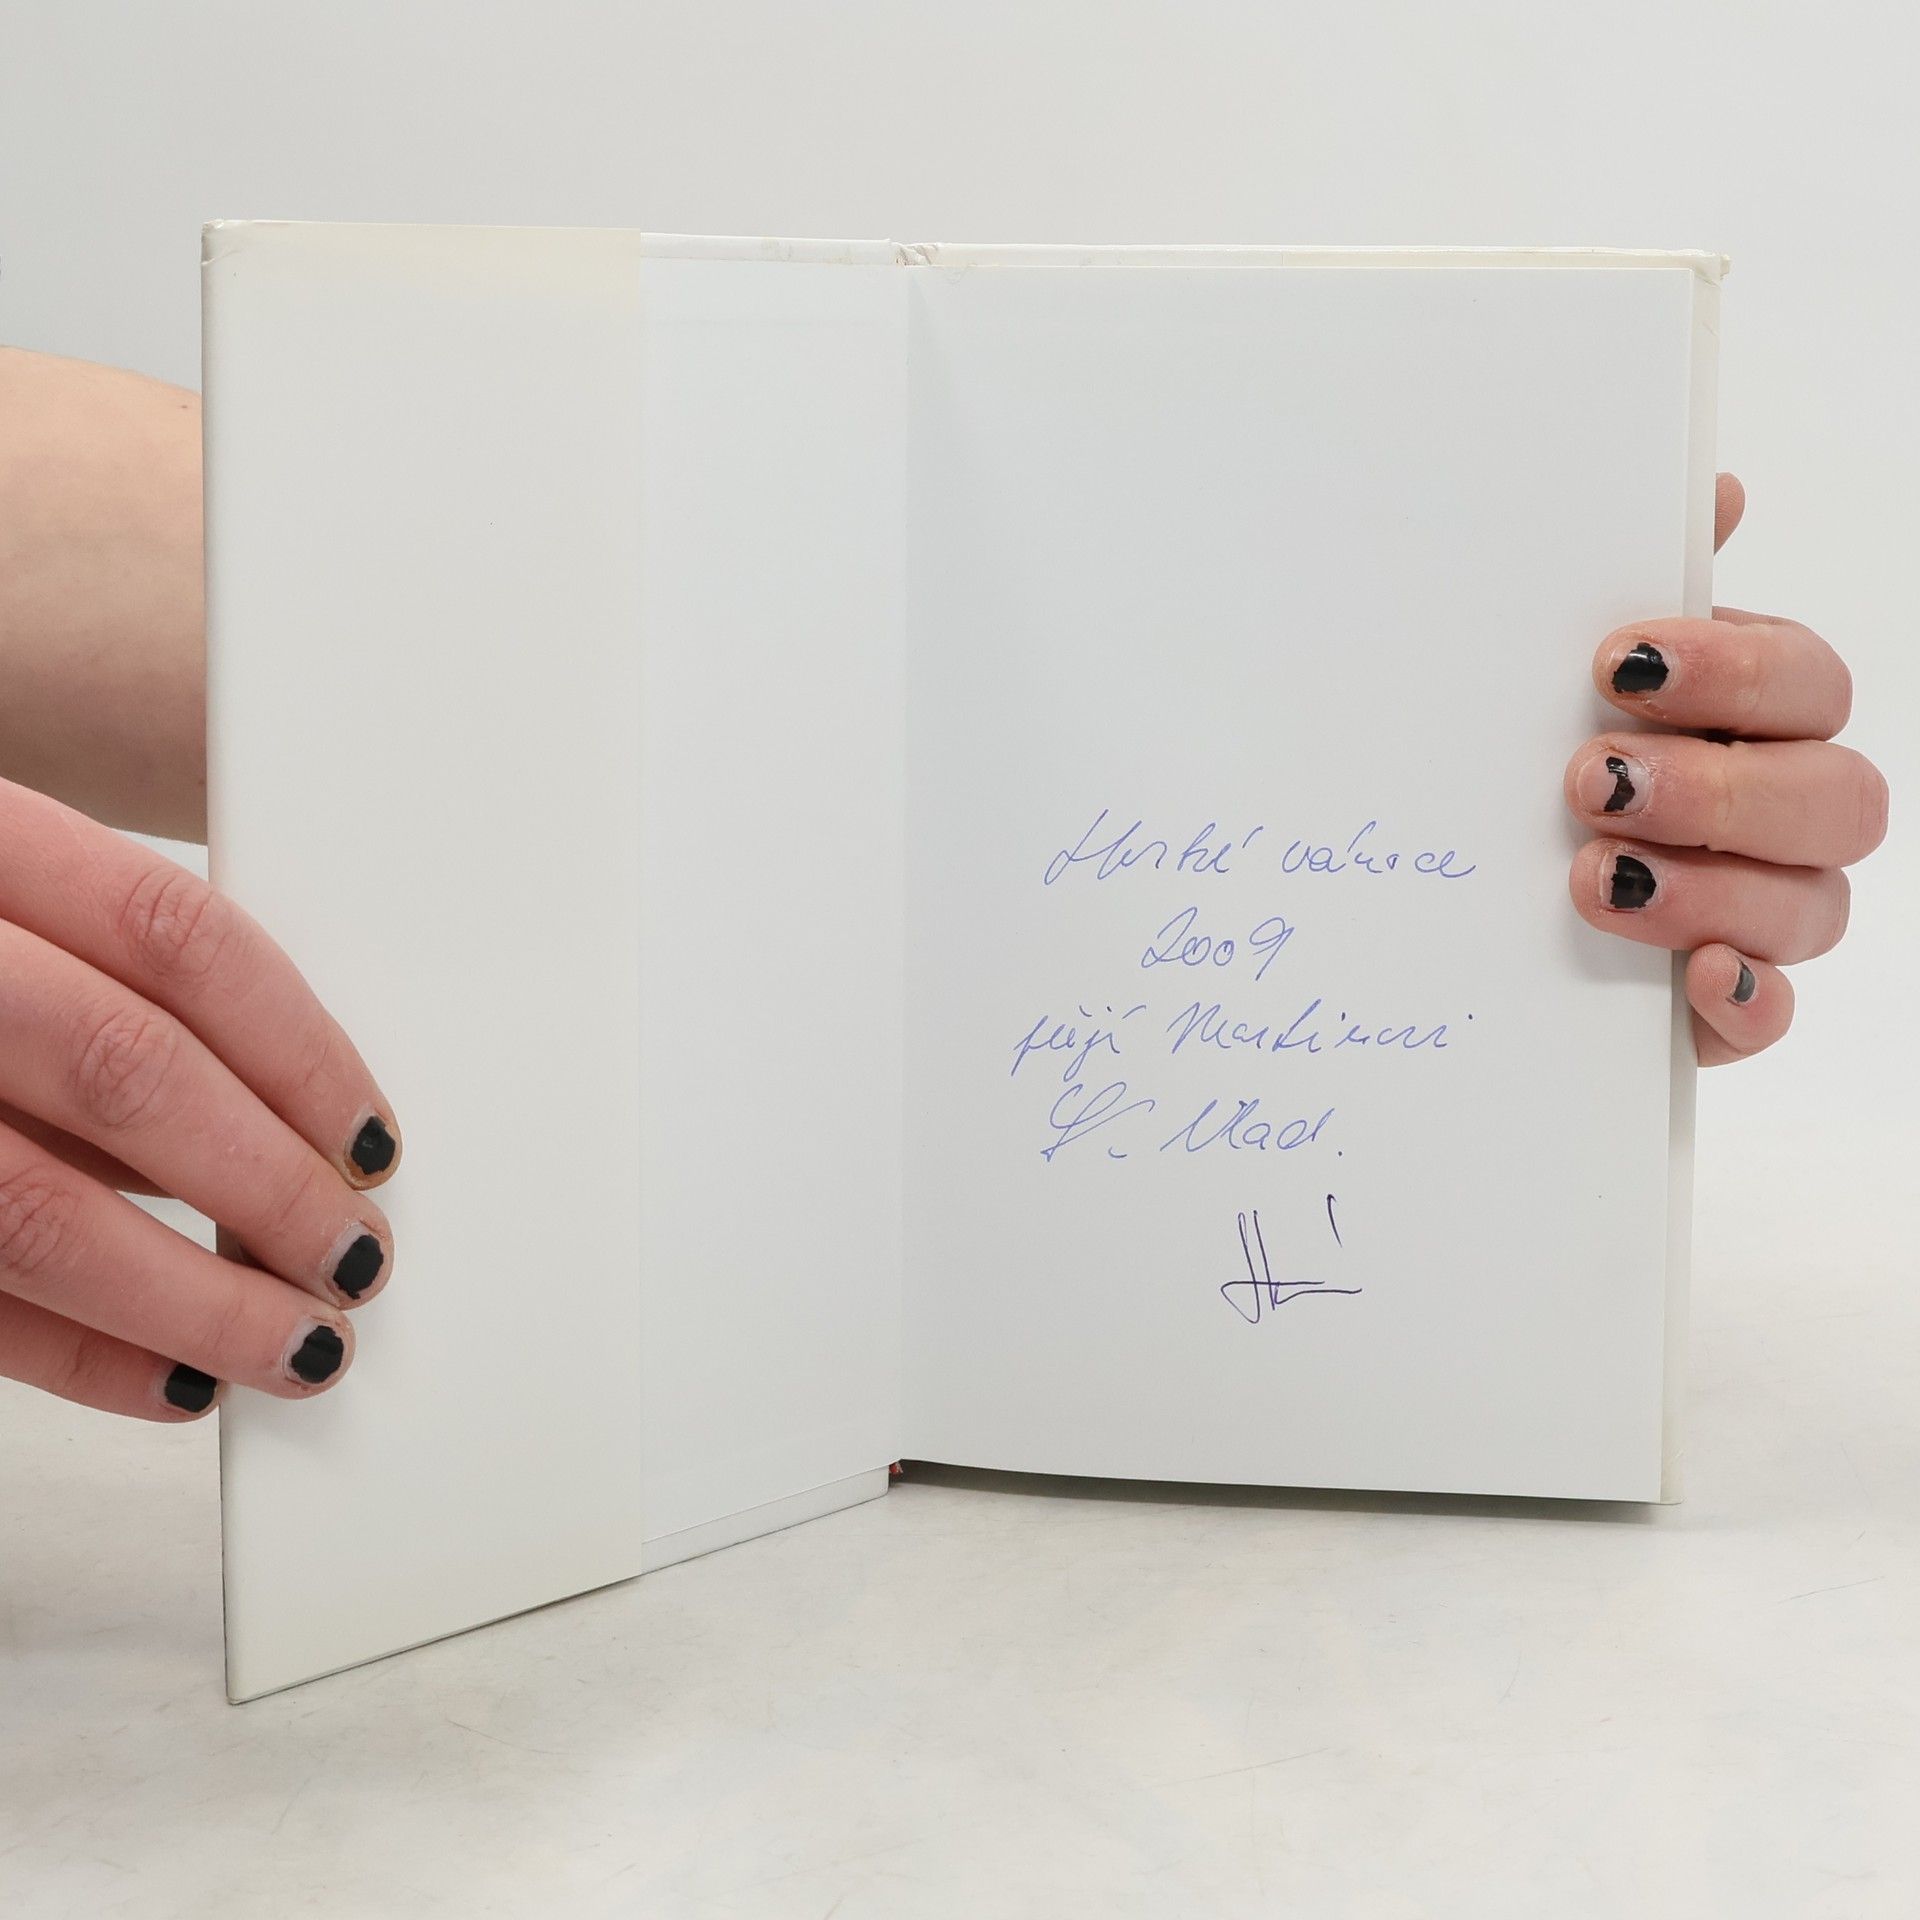 Horké vánoce
2009
přejí Martinovi
Vlad.